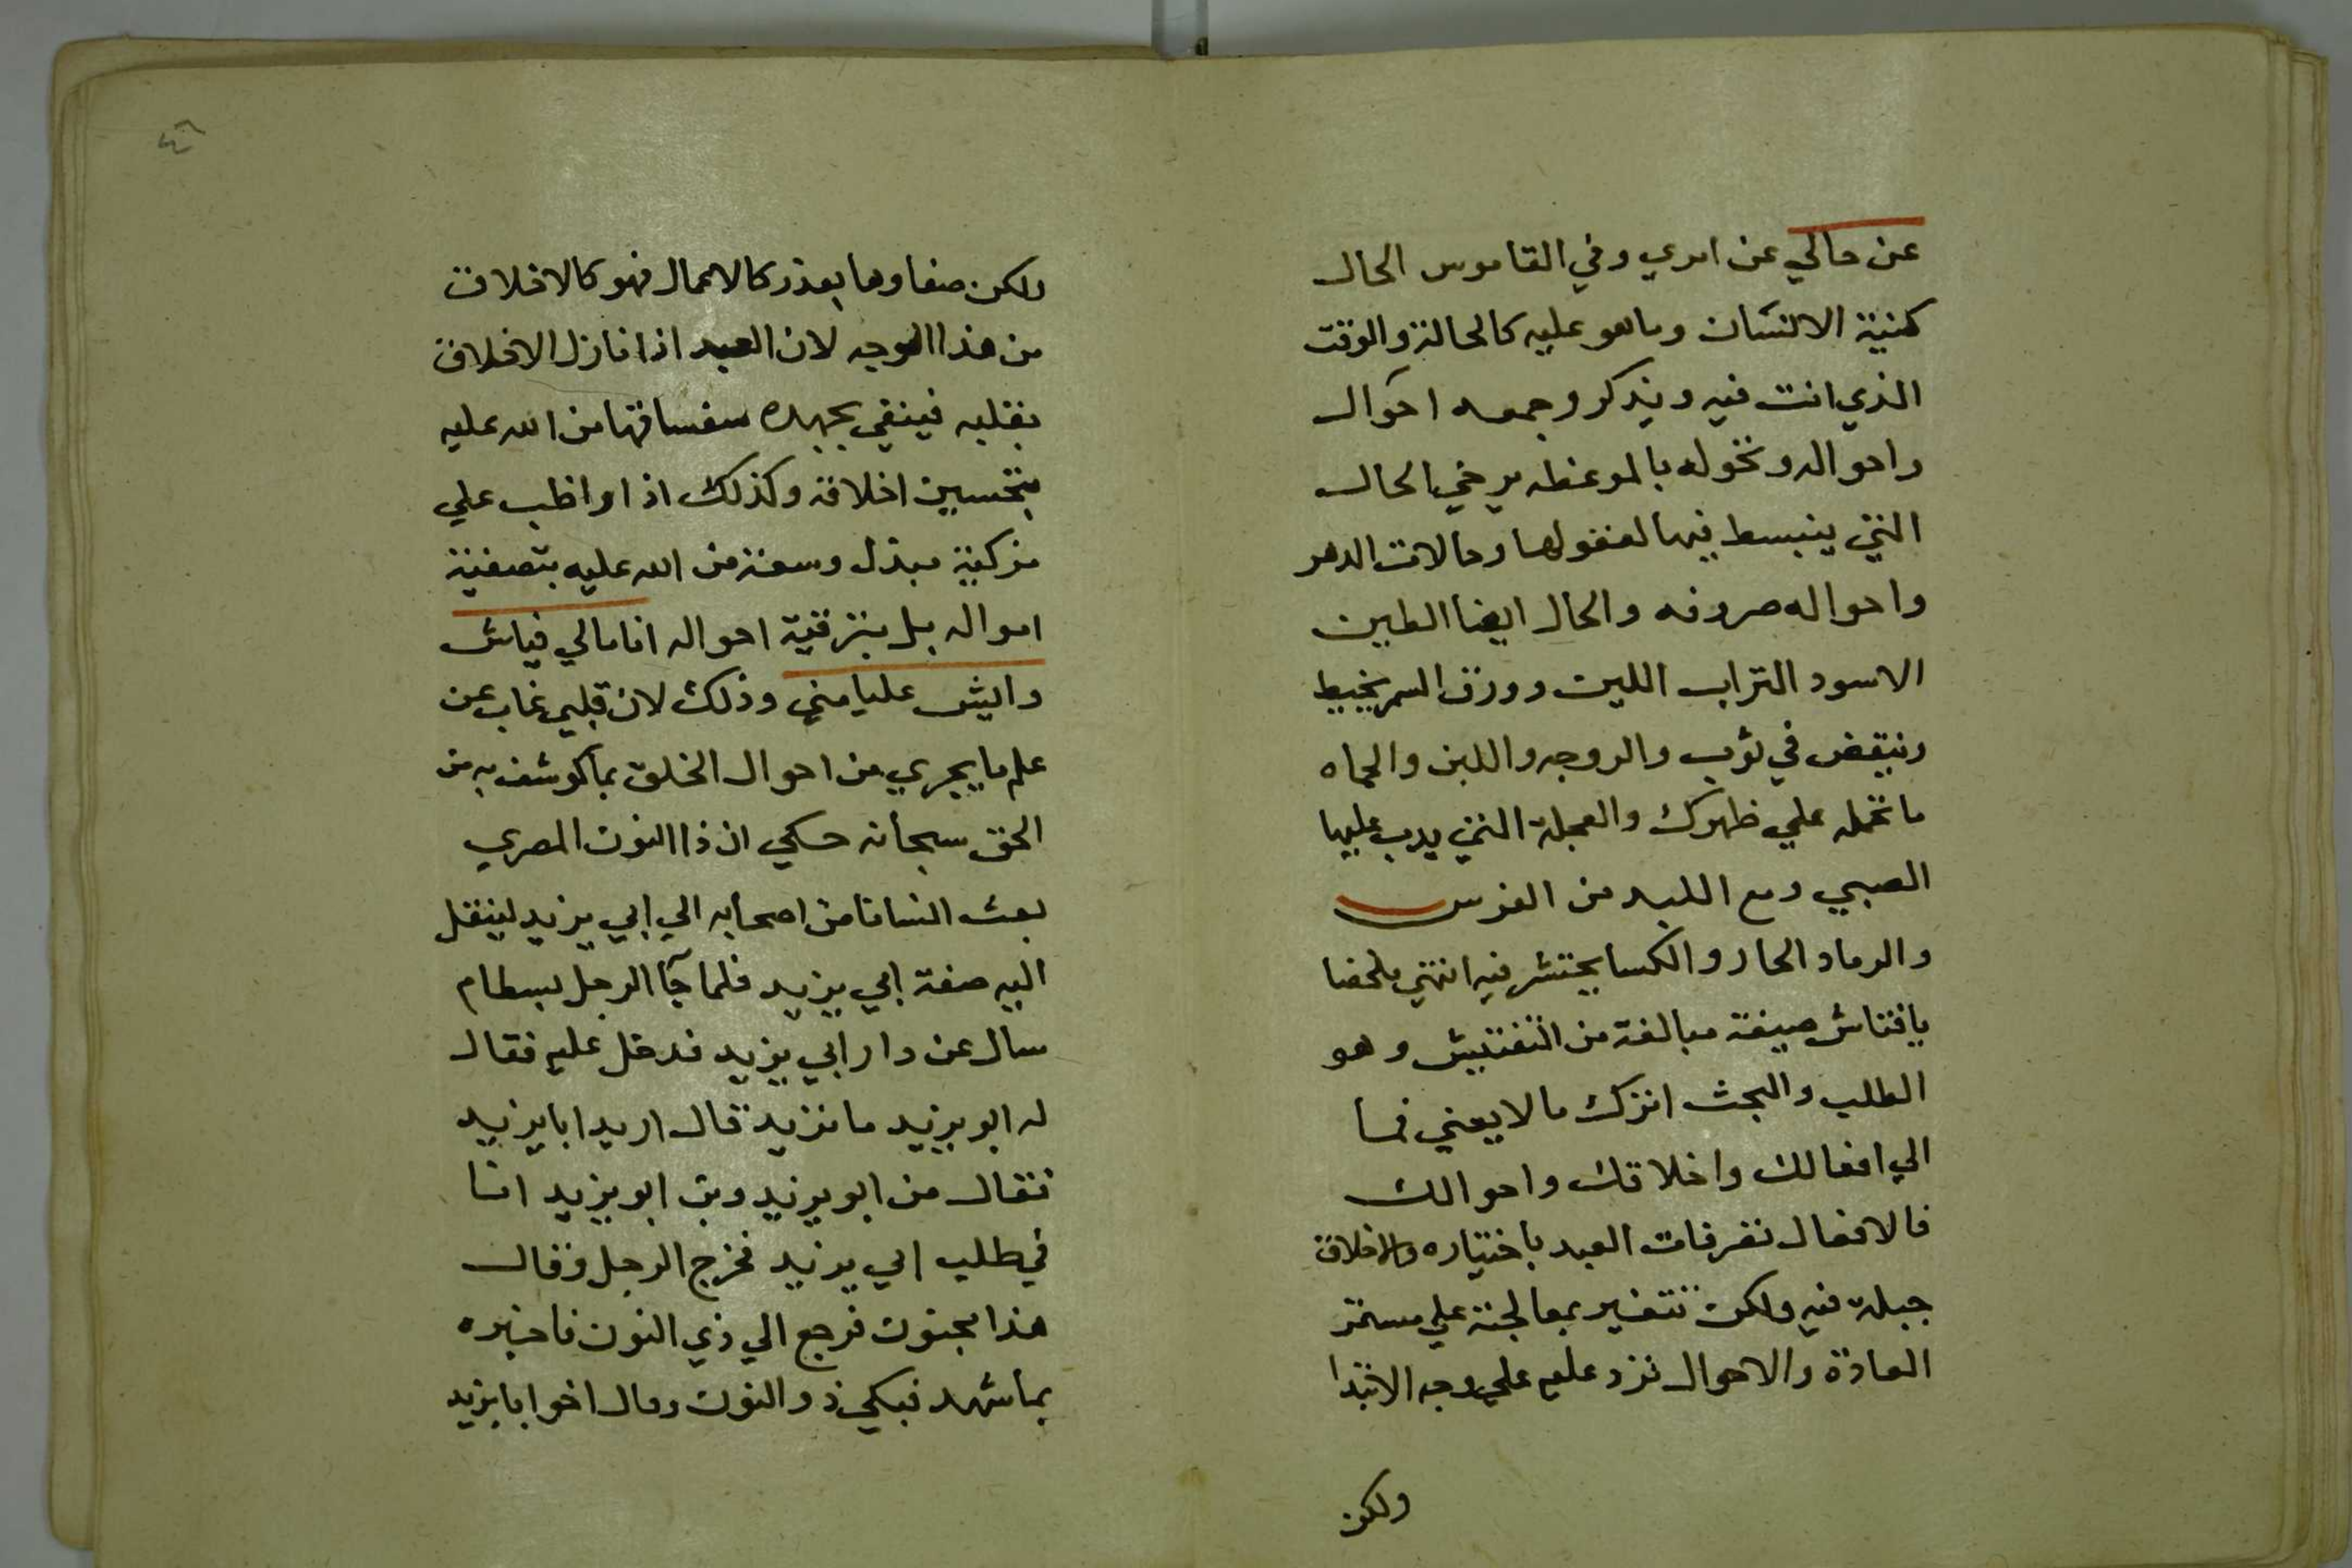 عن حالي عن امري وفي القاموس الحال
كنية الانسان وما هو عليه كالحالة والوقت
الذي انت فيه ويذكر وجمعه احوال
واحواله وتخوله بالموعظه يرخي الحال
التي ينبسط فيها لعفولها وحالات الدهر
واحواله صروفه والحال ايضا الطين
الاسود التراب اللين وورق السمر يخبط
وينقض في ثوب والزوجه واللبن والحماه
ما تحمله علي ظهرك والعجلة التي يدب عليها
الصبي ومع اللبد من الفرس
والرماد الحار والكسا يحتش فيه انتهي ملخصا
يا فتاش صيغة مبالغة من التفتيش وهو
الطلب والبحث اترك ما لا يعني فسا
الي افعالك واخلاقك واحوالك
فالافعال تصرفات العبد باختياره والاخلاق
جبلة فيه ولكن تتغير بمعالجته علي مستمر
العادة والاحوال ترد عليه علي وجه الابتدا
ولكن
ولكن صفاوها بعذر كالاعمال فهو كالاخلاق
من هذا الوجه لان العبد اذا نازل الاخلاق
بقلبه فينقي بجهده سفسافها من الله عليه
بتحسين اخلاقه وكذلك اذا واظب علي
تزكية ببذل وسعه من الله عليه بتصفية
امواله بل بترقية احواله انا مالي فياش
وايش عليا مني وذلك لان قلبي غاب عن
علم ما يجري من احوال الخلق بما كوشف به من
الحق سبحانه حكي ان ذا النون المصري
بعث انسانا من اصحابه الي ابي يزيد لينقل
اليه صفة ابي يزيد فلما جآ الرجل بسطام
سال عن دار ابي يزيد فدخل عليه فقال
له ابو يزيد ما تريد قال اريد ابا يزيد
فقال من ابو يزيد وين ابو يزيد انا
في طلب ابي يزيد فخرج الرجل وقال
هذا مجنون فرجع الي ذي النون فاخبره
بما شهد فبكي ذو النون وقال اخوا بايزيد